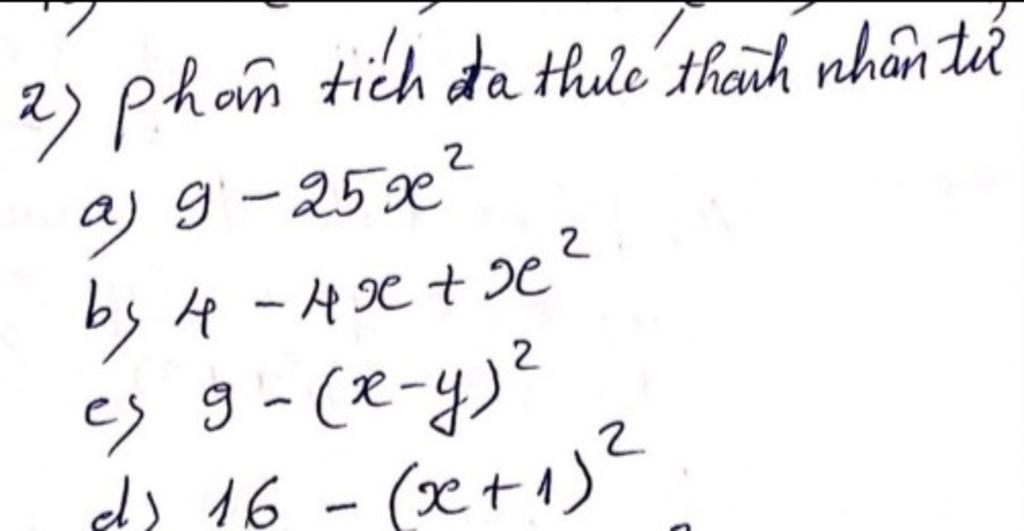 2) Phân tích đa thức thành nhân tử
a) 9 - 25x²
b) 4 - 4x + x²
c) 9 - (x-y)²
d) 16 - (x+1)²